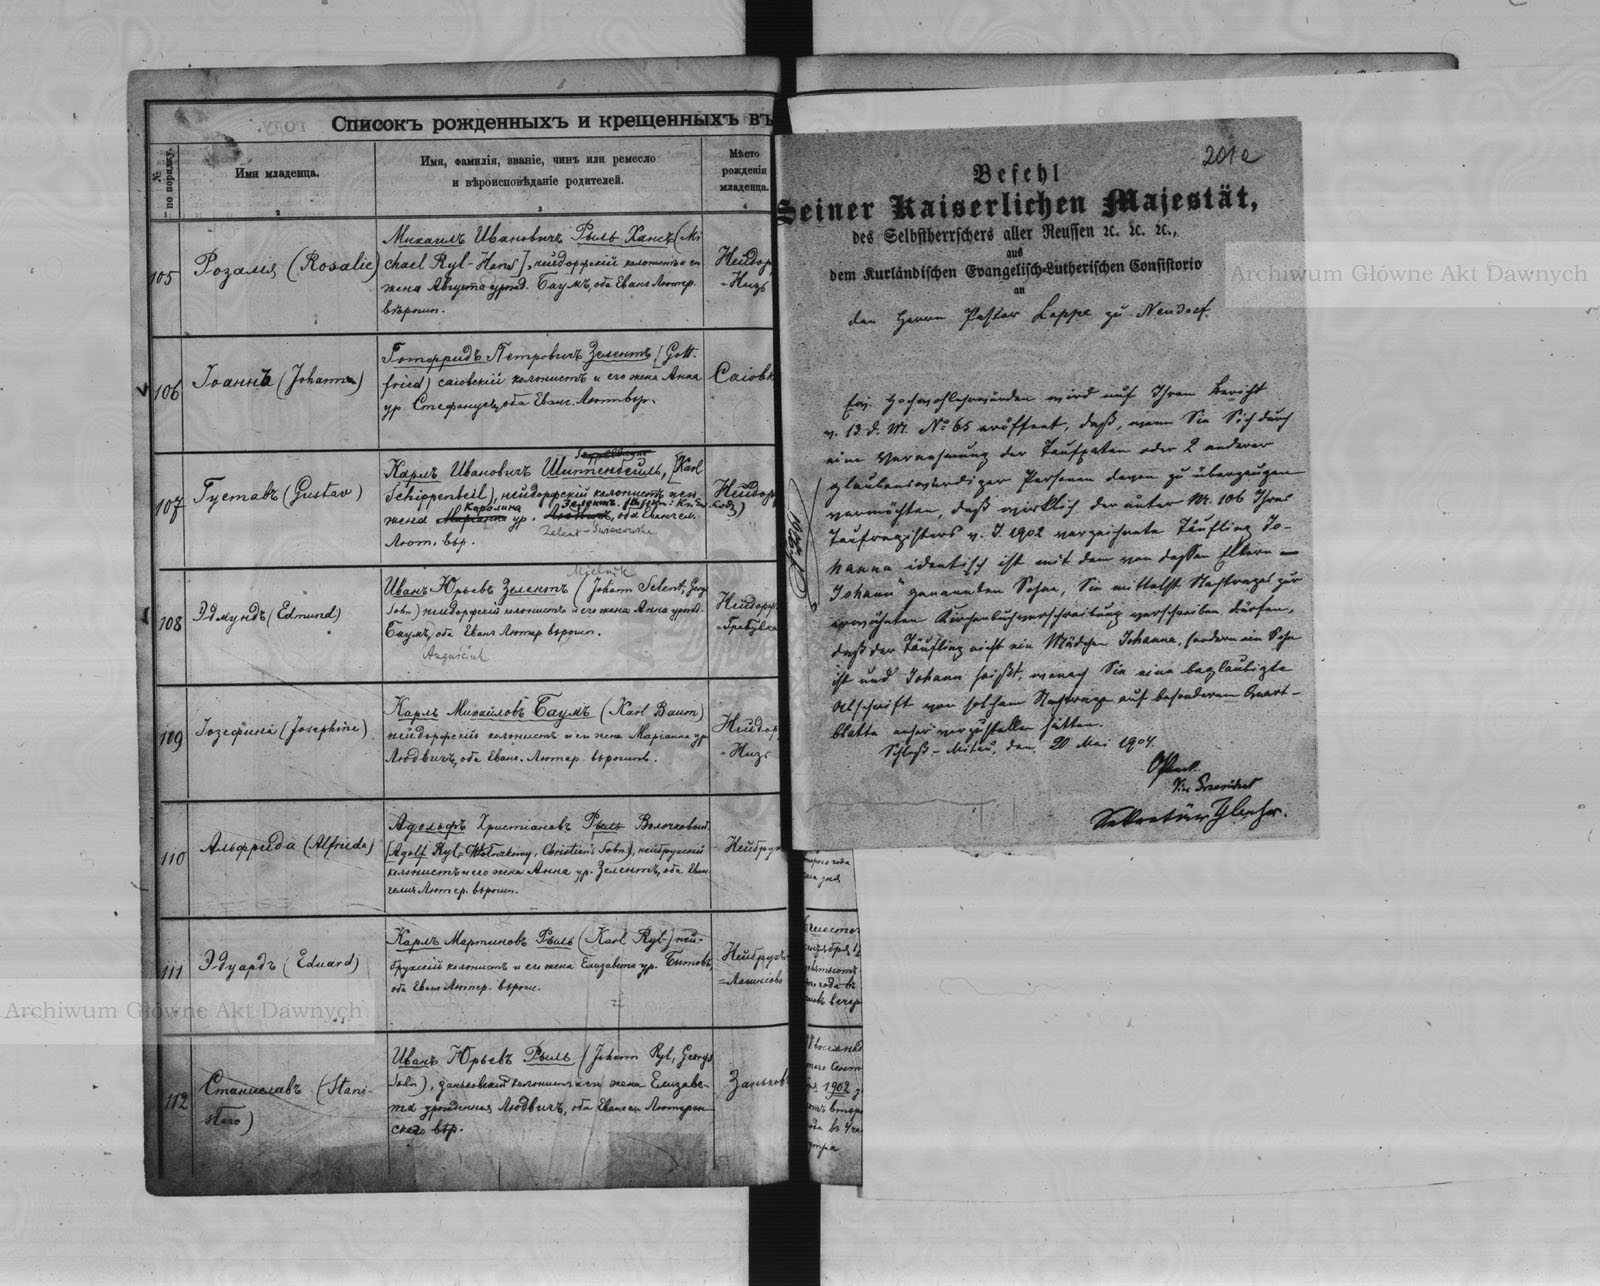 Списокъ рожденныхъ и крещенныхъ въ
№ по порядку.
Имя младенца.
Имя, фамилія, званіе, чинъ или ремесло
и вѣроисповѣданіе родителей.
Мѣсто
рожденія
младенца.
2
3
4
105
Розалія (Rosalie)
Михаилъ Ивановичъ Рыль-Хансъ (Mi
chael Ryl-Hans], нейдорфскій колонистъ и его
жена Августа урожд. Баумъ, оба Еванг. Лютер.
вѣроисп.
Нейдор
-Низъ
106
Іоаннъ (Johanna)
Готфридъ Петровичъ Зелентъ [Gott-
fried) саіовскій колонистъ и его жена Анна
ур. Стефанусъ, оба Еванг. Лют. вѣр.
Саіовк
107
Густавъ (Gustav)
Карлъ Ивановичъ Шиппенбейль, [Karl
Schippenbeil), нейдорфскій колонистъ и его
Каролина Зелентъ
жена Маріанна ур. оба Евангел.
Zelent-
Лют. вѣр.
Нейдор
108
Эдмундъ (Edmund)
Mielnik
Иванъ Юрьевъ Зелентъ (Johann Selent, Georgs
Sohn) нейдорфскій колонистъ и его жена Анна урожд.
Баумъ, оба Еванг. Лютер. вѣроисп.
Augusciuk
Нейдорф
-Грабувка
109
Іозефина (Josephine)
Карлъ Михайловъ Баумъ (Karl Baum)
нейдорфскій колонистъ и его жена Маріанна ур.
Людвигъ, оба Еванг. Лютер. вѣроисп.
Нейдор
-Низъ
110
Альфрида (Alfriede)
Адольфъ Христіановъ Рыль Волочковый
[Adolf Ryl, Wolozkowy, Christian's Sohn), нейбрухскій
колонистъ и его жена Анна ур. Зелентъ, оба Еван
гелич. Лютер. вѣроисп.
Нейбрух
111
Эдуардъ (Eduard)
Карлъ Мартиновъ Рыль (Karl Ryl) ней-
брухскій колонистъ и его жена Елизавета ур. Бытовъ,
оба Еванг. Лютер. вѣроис.
Нейбрухъ-
112
Станиславъ (Stani-
slaw)
Иванъ Юрьевъ Рыль (Johann Ryl, Georgs
Sohn), даньковскій колонистъ и его жена Елизаве-
та урожденная Людвигъ, оба Евангел. Лютеран-
скаго вѣр.
Заньков
201a
Befehl
Seiner Kaiserlichen Majestät,
des Selbstherrschers aller Reussen ꝛc. ꝛc. ꝛc.,
aus
dem Kurländischen Evangelisch-Lutherischen Consistorio
an
den Herrn Pastor Loppe zu Neudorf.
Ew. Hochwohlehrwürden wird auf Ihren Bericht
v. 13. d. M. № 65 eröffnet, daß, wenn Sie Sich durch
eine Vernehmung der Taufpaten oder 2 anderer
glaubenswürdiger Personen davon zu überzeugen
vermöchten, daß wirklich der unter Nr. 106 Ihres
Taufregisters v. J. 1902 verzeichnete Täufling Jo-
hanna identisch ist mit dem von dessen Eltern
Johann genannten Sohne, Sie mittelst Nachtrages zur
erwähnten Kirchenbuchverschreibung verschreiben dürfen,
daß der Täufling nicht ein Mädchen Johanna, sondern ein Sohn
ist und Johann heißt, wonach Sie eine beglaubigte
Abschrift von solchem Nachtrage auf besonderem Quart-
blatte anher vorzustellen hätten.
Schloß-Mitau, den 20 Mai 1904.
Vice Präsident
Sekretär
1902
Archiwum Główne Akt Dawnych
Archiwum Główne Akt Dawnych